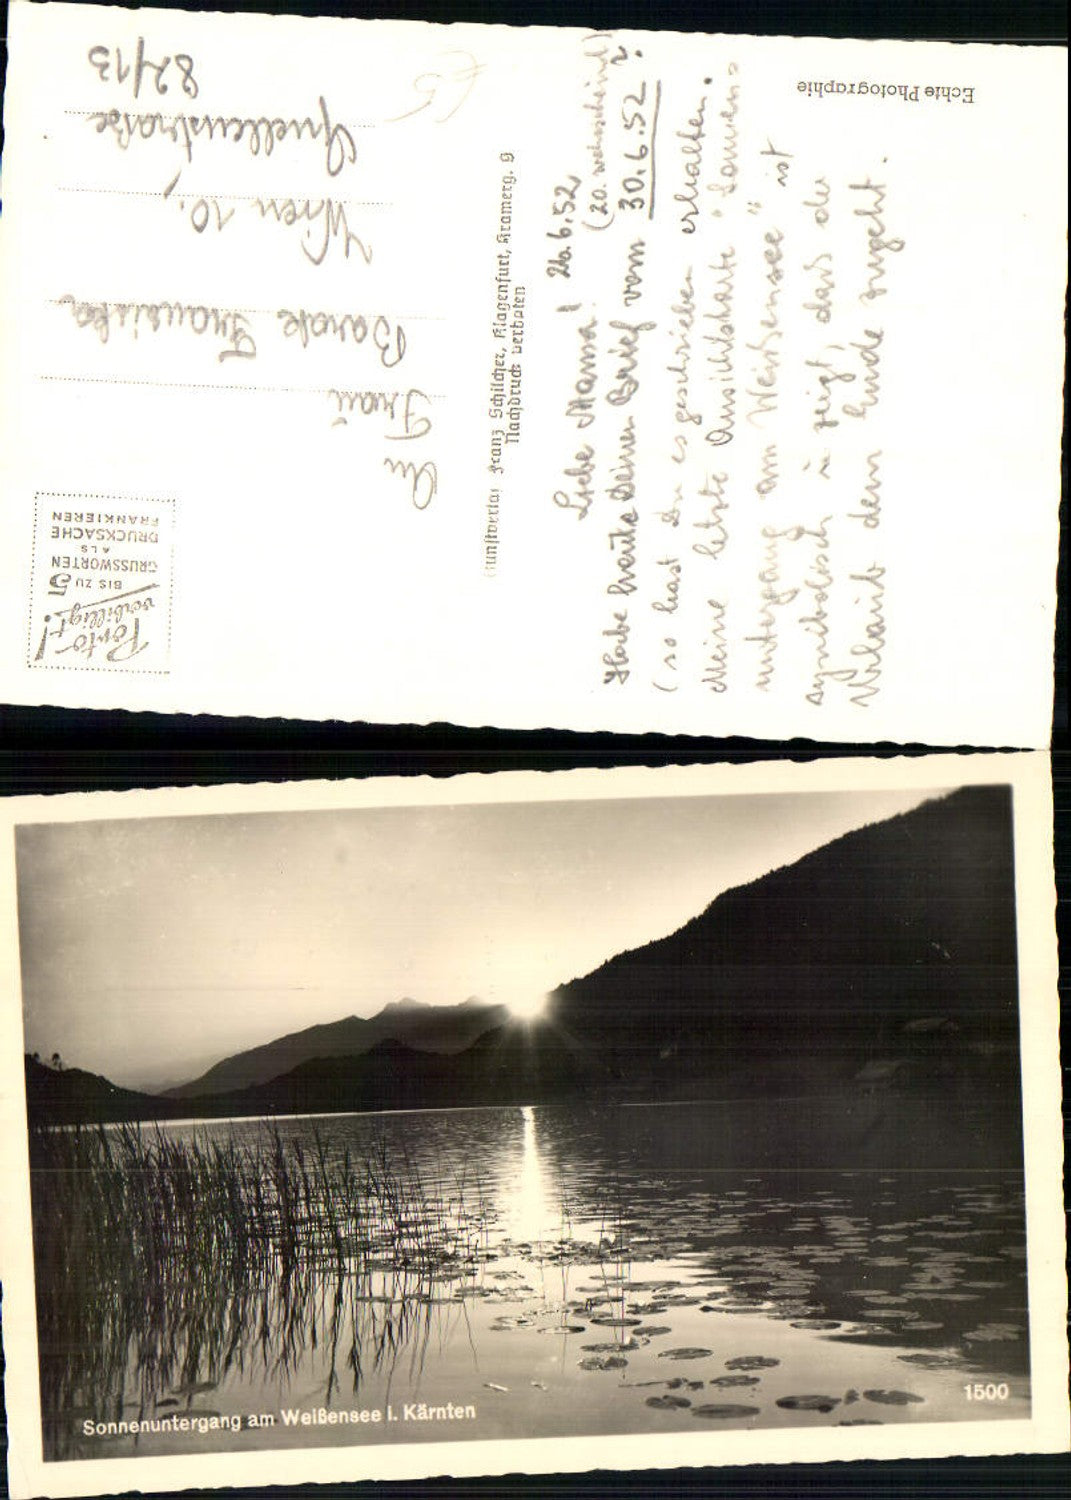 Echte Photographie
26.6.52
Liebe Mama!
(20. wahrscheinl.)
Habe heute Deinen Brief vom 30.6.52 ?
(so hast Du es geschrieben erhalten.
Meine letzte Ansichtskarte "Sonnen=
untergang am Weißensee" ist
symbolisch u zeigt, dass der
Urlaub dem Ende zugeht.
Kunstverlag Franz Schilcher, Klagenfurt, Kramerg. 9
Nachdruck verboten
Porto-
verbilligt!
BIS ZU 5
GRUSSWORTEN
ALS
DRUCKSACHE
FRANKIEREN
An
Frau
Franziska
Wien 10.,
Quellenstraße
82/13
Sonnenuntergang am Weißensee i. Kärnten
1500